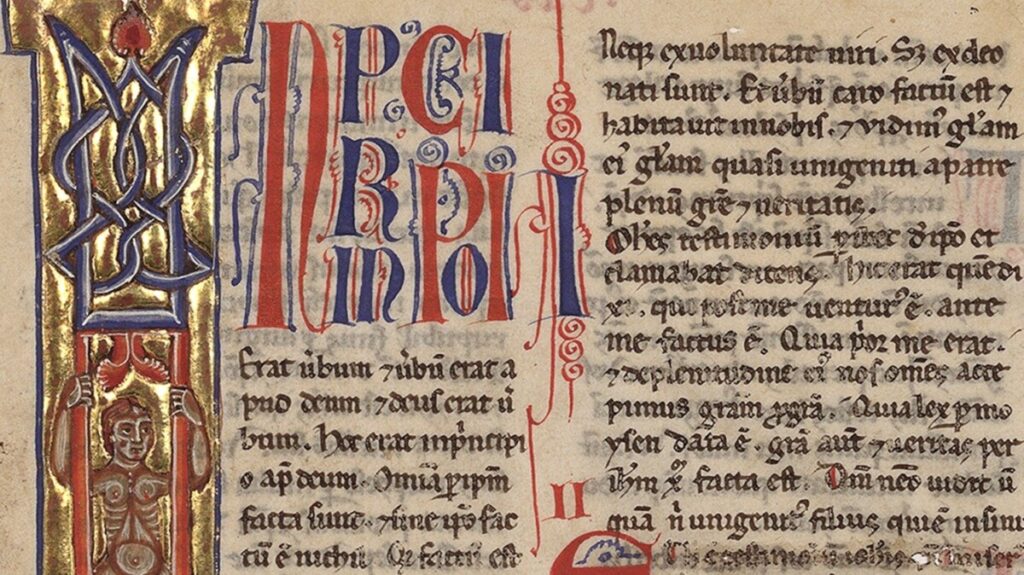 IN P CI
R PI
IN O
Erat ūbum ⁊ ūbū erat a
pud deum ⁊ deus erat ū
bum. Hoc erat inp̄ncipi
o ap̄ deum. Omīa ꝑ ipm̄
facta sunt. ⁊ sine ip̄o fac
tū ē nichil. Qḋ factū est
I
Neqꝫ ex uoluntate uiri. Sꝫ ex deo
nati sunt. Et ūbū caro factū est ⁊
habitauit in nobis. ⁊ vidimꝰ gl̄am
eiꝰ gl̄am quasi unigeniti a patre
plenū gr̄e ⁊ ueritatis.
Ioh̄es testimoniū ꝑhibet d̄ ip̄o et
clamabat dicens. Hic erat quē di
xi. qui post me uenturꝰ ē. ante
me factus ē. Quia p̄or me erat.
⁊ de plenitudine eiꝰ nos om̄es acce
pimus gr̄am ꝓ gr̄a. Quia lex ꝑ mo
ysen data ē. gr̄a aut̄ ⁊ ueritas per
ih̄m xp̄m facta est. Dm̄ nemo uidit ū
II
quā n̄ unigenitꝰ filius qui ē in sinu